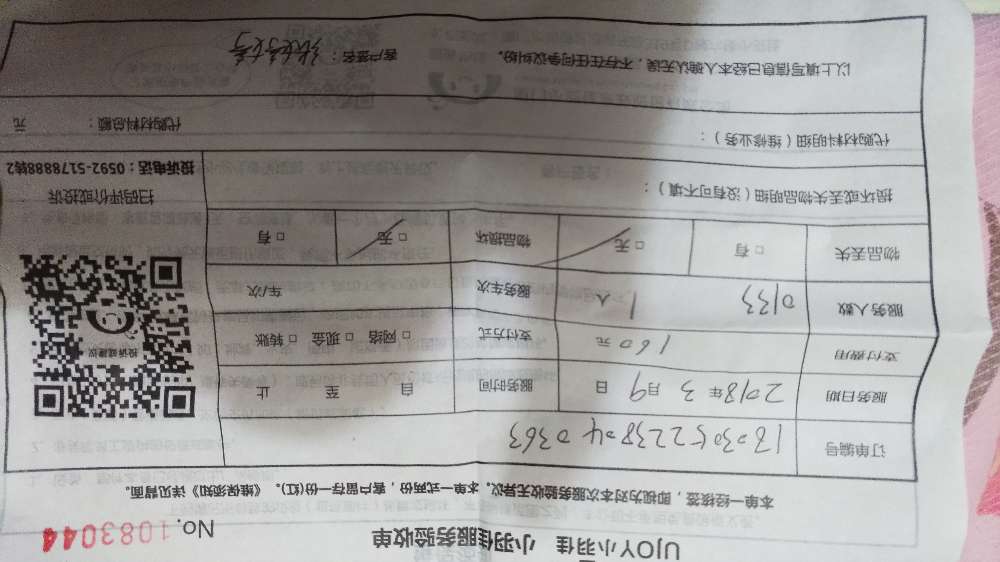 UJOY小羽佳 小羽佳服务验收单 No. 1083044
本单一经核签，即视为对本次服务验收无异议。本单一式两份，客户留存一份(红)。《维保须知》详见背面。
订单编号 180305223804 0363
服务日期 2018年 3 月 9 日 服务时间 自 至 止
支付费用 160 元 支付方式 □ 网络 □ 现金 □ 转账
服务人数 0133 1 人 服务车次 车/次
物品丢失 □ 有 □ 无 物品损坏 □ 无 □ 有
投诉或建议
损坏或丢失物品明细（没有可不填）：
扫码评价或投诉
投诉电话：0592-5178888转2
代购材料明细（维修业务）： 代购材料总额： 元
以上填写信息已经本人确认无误，不存在任何争议纠纷。 客户签名：